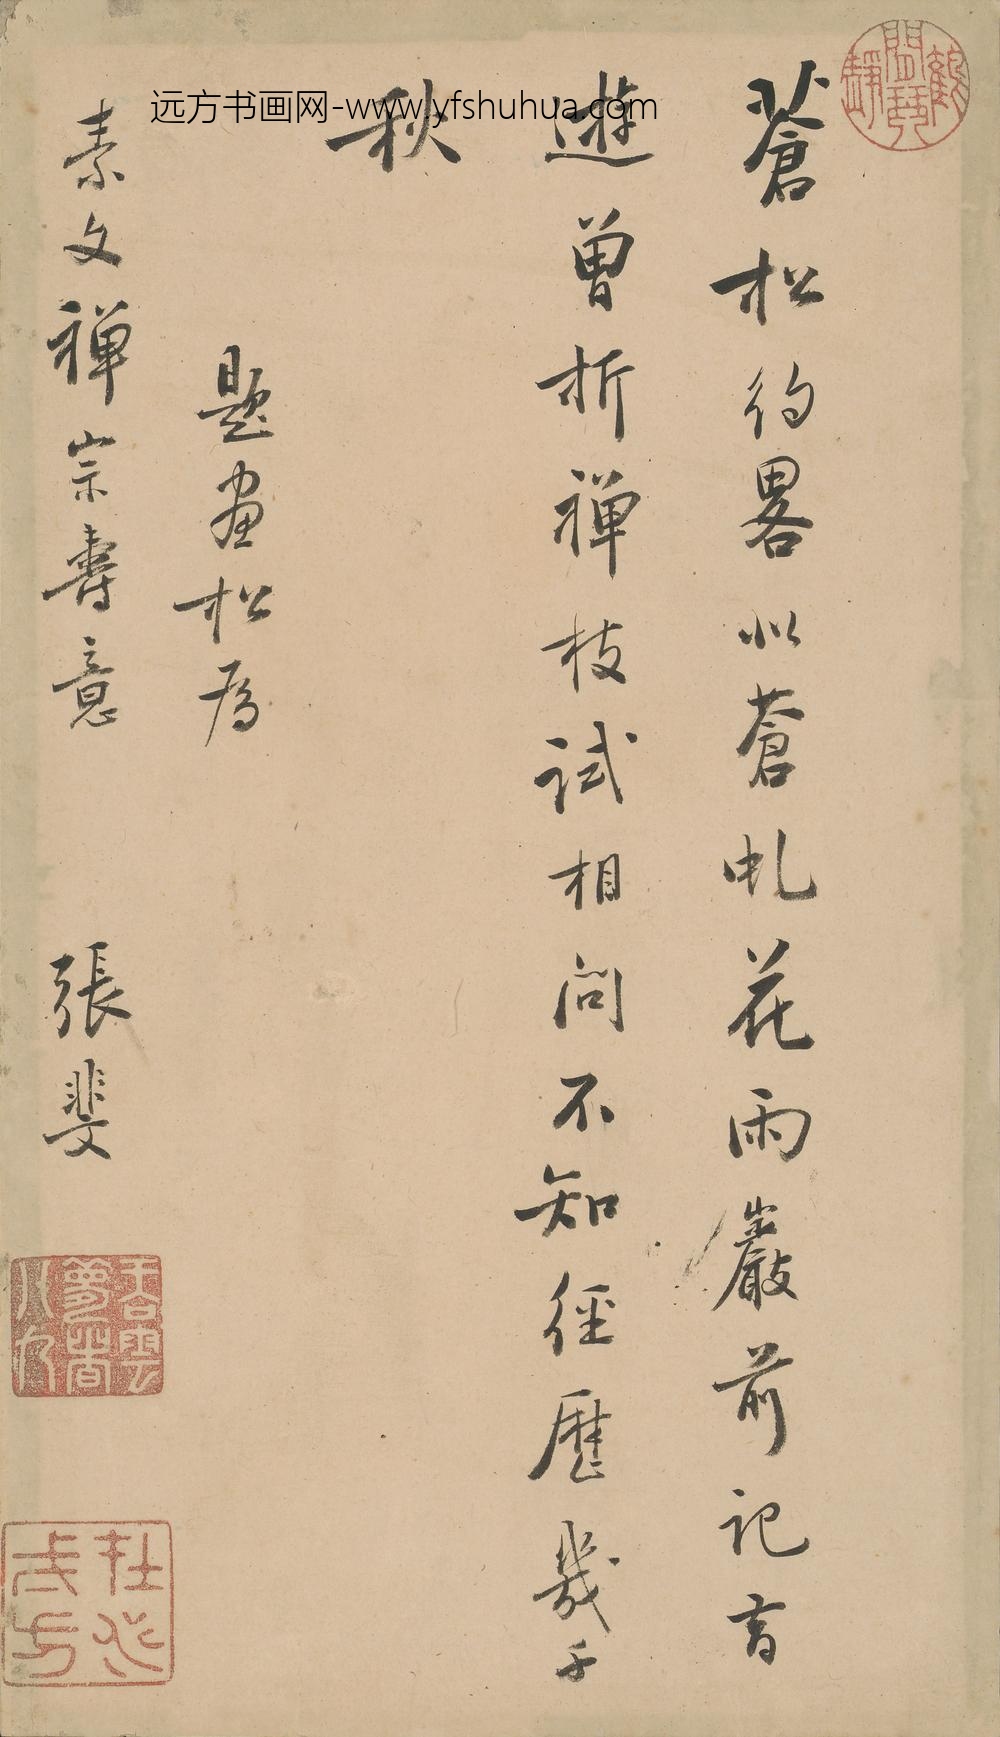 远方书画网-www.yfshuhua.com
蒼松約畧似蒼虬花雨巖前記昔
遊曾折禅枝試相問不知經歷幾千
秋
題畫松為
素文禅宗壽意 張斐